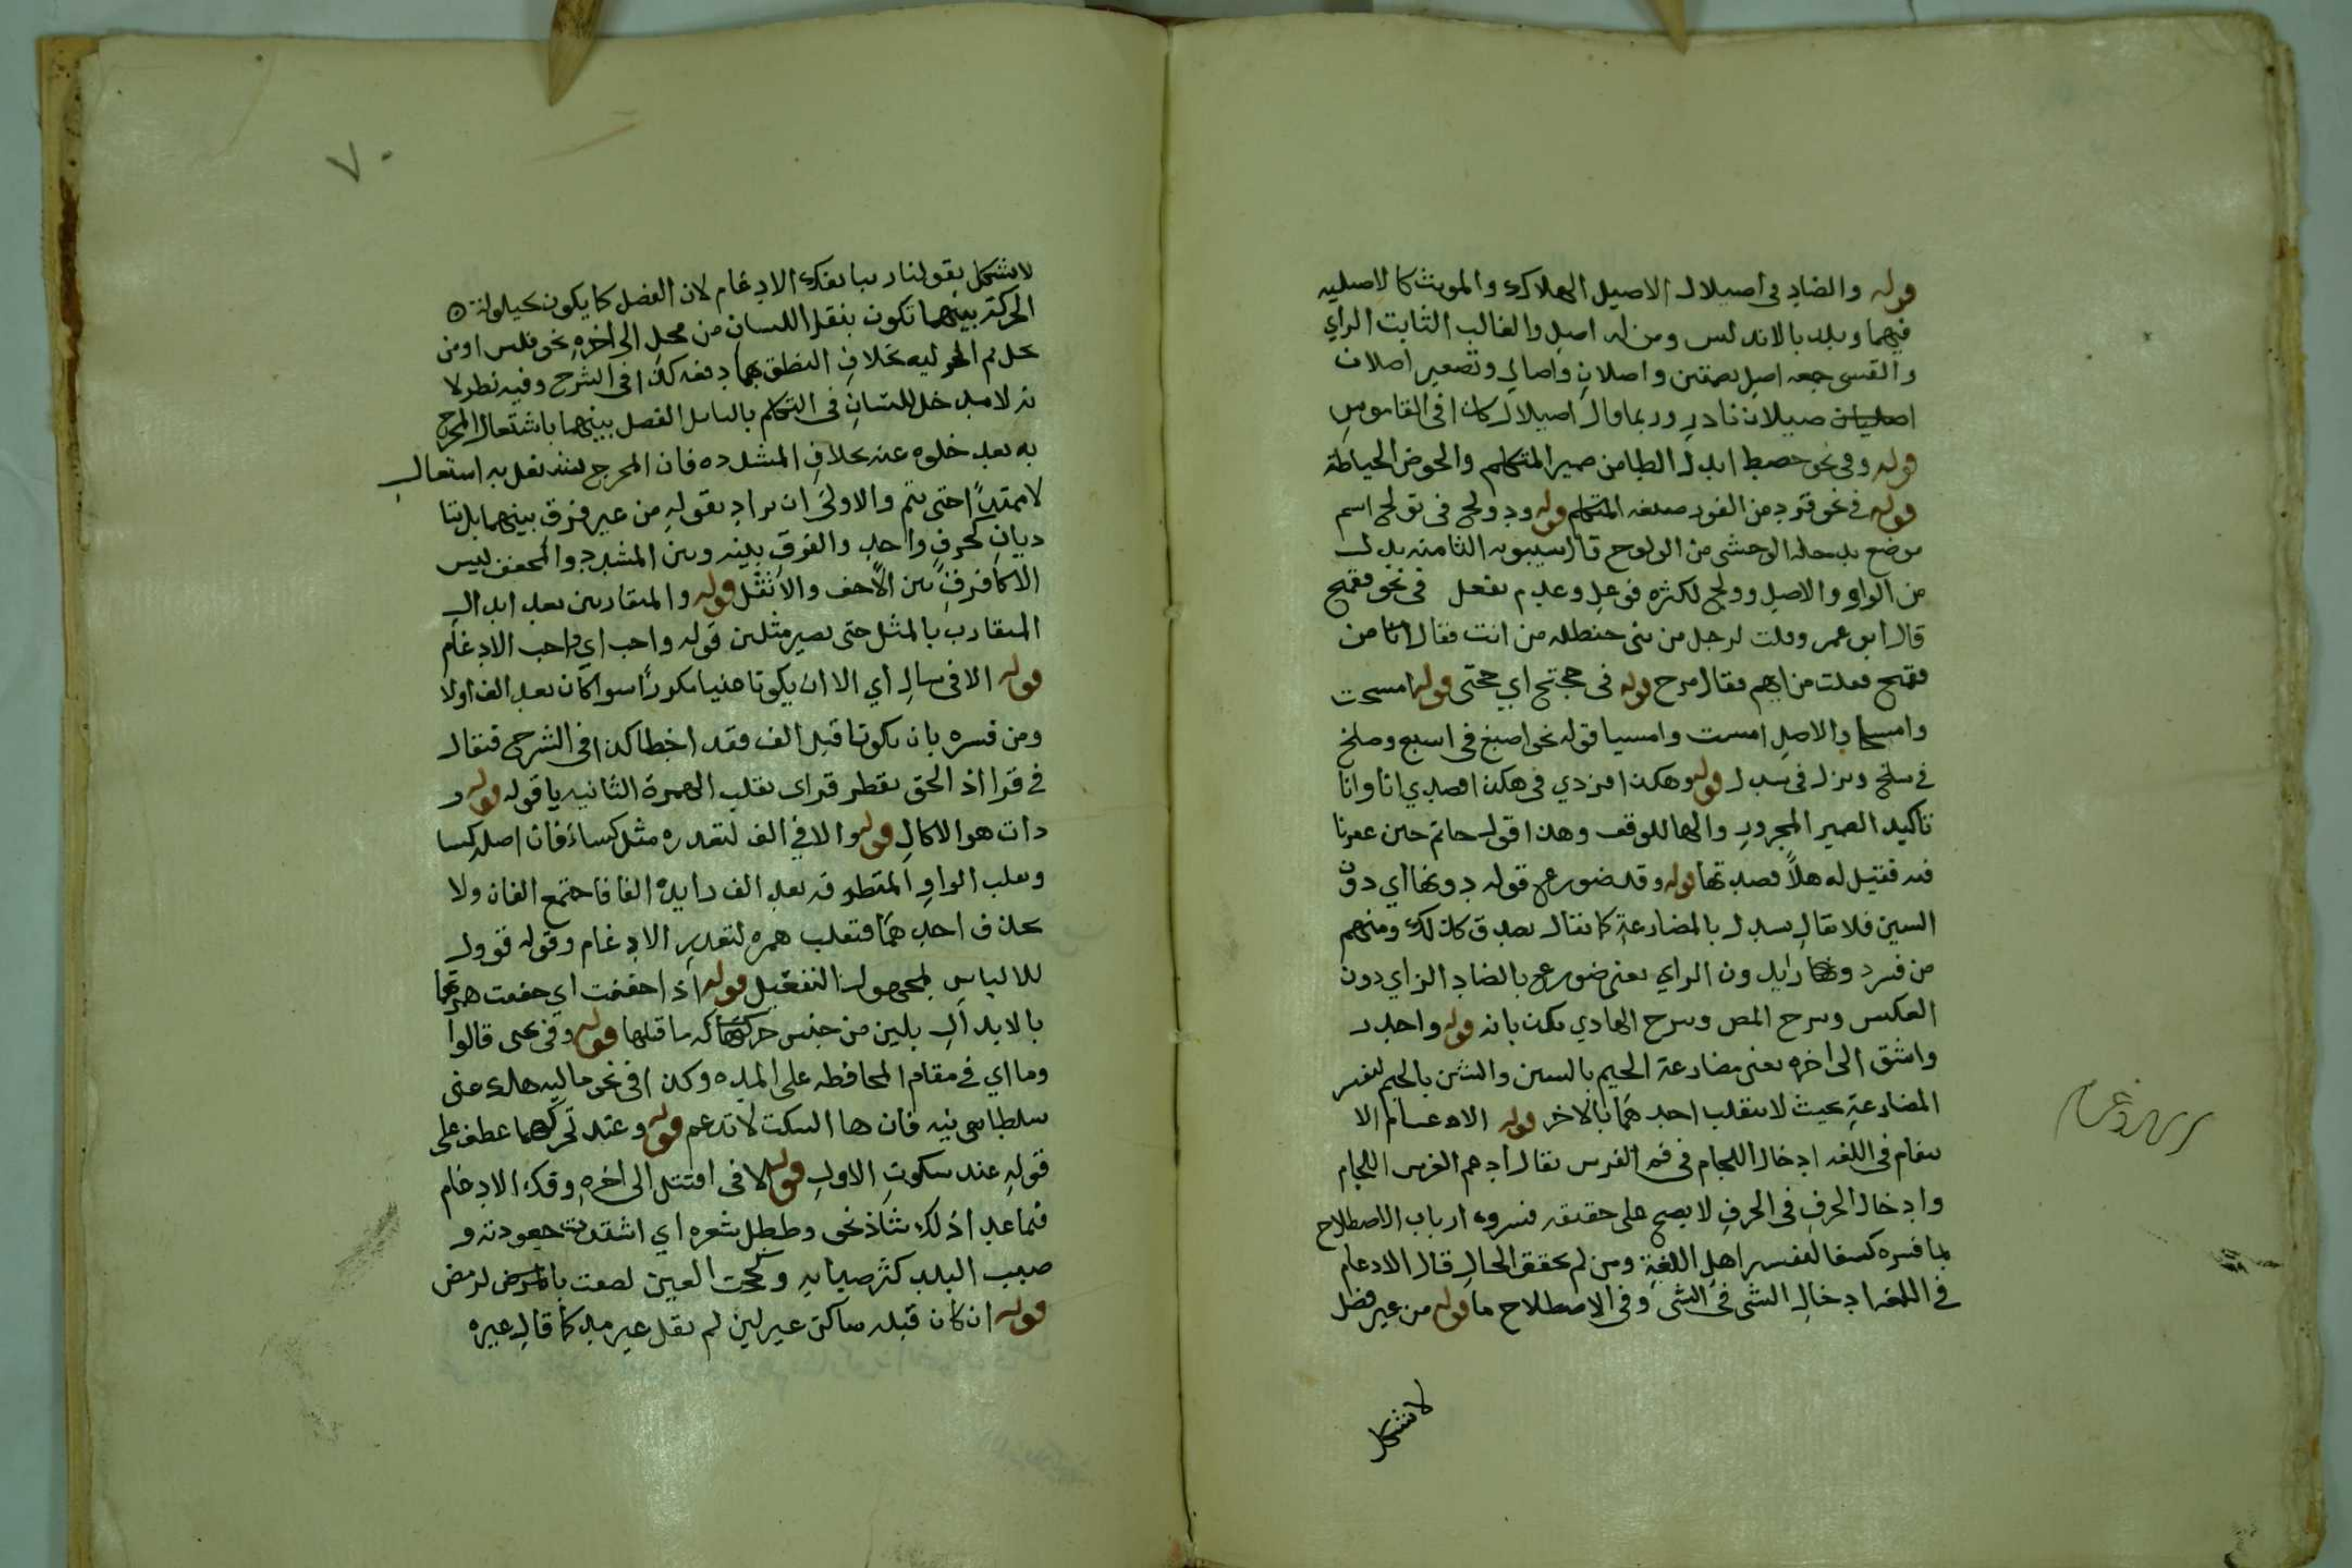 قوله والضاد فى اصيلال الاصيل الهلاك والموت كالاصيله
فيهما وبلد بالاندلس ومن له اصل والغالب الثابت الراي
والعشى جمعه اصل بضمتين واصلان واصال وتصغير اصلان
اصيلان نادر وربما قال اصيلال كذا فى القاموس
قوله وفى نحو حصط ابدل الطا من ضمير المتكلم والحوض الخياطة
قوله فى نحو فزد من الفوز صيغه المتكلم قوله ودولج فى تولج اسم
موضع يدخله الوحشى من الولوج قال سيبويه التا منه بدل
من الواو والاصل وولج لكثره فوعل وعدم تفعل فى نحو فقمج
قال ابو عمر وقلت لرجل من بنى حنظله من انت فقال انا من
فقمج فقلت من ايهم فقال مرج قوله فى حجتج اي حجتى قوله امسجت
وامسجا والاصل امسيت وامسيا قوله نحو اصبغ فى اسبغ وصلخ
فى سلخ ويزدل فى يسدل قوله وهكذا فزدي فى هكذا فصدي انا وانا
تاكيد الضمير المجرور والها للوقف وهذا قول حاتم حين عقر نا
قته فقيل له هلا فصدتها قوله وقد ضورع قوله دونها اي دون
السين فلا يقال يسدل بالمضارعة كما يقال يصدق كذلك ومنهم
من فسر دونها زايل دون الراي يعنى ضورع بالضاد الزاي دون
العكس وشرح المص وشرح الهادي يكذبانه قوله واجدر
واشدق الى اخره يعنى مضارعة الجيم بالسين والشين بالجيم لتفسر
المضارعة بحيث لا ينقلب احدهما بالاخر قوله الادغام الا
دغام فى اللغه ادخال اللجام فى فم الفرس يقال ادغم الفرس اللجام
وادخال الحرف فى الحرف لا يصح على حقيقه فسروه ارباب الاصطلاح
بما فسره كشفا لتفسير اهل اللغة ومن لم يحقق الحال قال الادغام
فى اللغه ادخال الشى فى الشى وفى الاصطلاح ما قوله من غير فصل
لا يشكل
الادغام
٧٠
لا يشكل بقولنا ريبا بفك الادغام لان الفصل كما يكون بحيلولة
الحركة بينهما تكون بنقل اللسان من محل الى اخره نحو فلس او من
محل ثم الحوليه بخلاف النطق بهما دفعه كذا فى الشرح وفيه نظر لا
نه لا مدخل للسان فى التكلم بالبابل الفصل بينهما باشتعال المخرج
به بعد خلوه عنه بخلاف المشدده فان المخرج يشتغل به استعال
لا ممتدا حتى يتم والاولى ان يراد بقوله من غير فرق بينهما بل يتا
ديان كحرف واحد والفرق بينه وبين المشدد والمخفف ليس
الا كما فرق بين الاخف والاثقل قوله والمتقاربين بعد ابدال
المتقارب بالمثل حتى يصير مثلين قوله واجب اي واجب الادغام
قوله الا فى سال اي الا ان يكونا عينا مكررا سوا كان بعد الف اولا
ومن فسره بان يكونا قبل الف فقد اخطا كذا فى الشرح فتقال
فى قرا اذ الحق بقطر قراى بقلب الهمزة الثانيه يا قوله قوله ر
دات هو الاكال قوله والا فى الف لتعذره مثل كساء فان اصله كسا
وبقلب الواو المتطرفه بعد الف زايدة الفا فاجتمع الفان ولا
يحذف احدهما فتقلب همزه لتعذر الادغام وقوله قوول
للالباس بمجهول التفعيل قوله اذا خففت اي خففت همزتها
بالابدال بلين من جنس حركة ما قبلها قوله وفى نحو قالوا
وما اي فى مقام المحافظه على المده وكذا فى نحو ماليه هلك عنى
سلطانيه فان ها السكت لا تدغم قوله وعند تحركهما عطف على
قوله عند سكون الاول قوله الا فى اقتتل الى اخره وفك الادغام
فيما عدا ذلك شاذ نحو وططل شعره اي اشتدت جعودته و
ضبب البلد كثر ضبابه و لححت العين لصقت بالرمص
قوله ان كان قبله ساكن غير لين لم يقل غير مد كما قال غيره